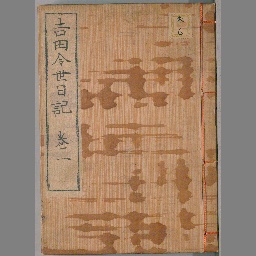 吉田令世日記 巻一